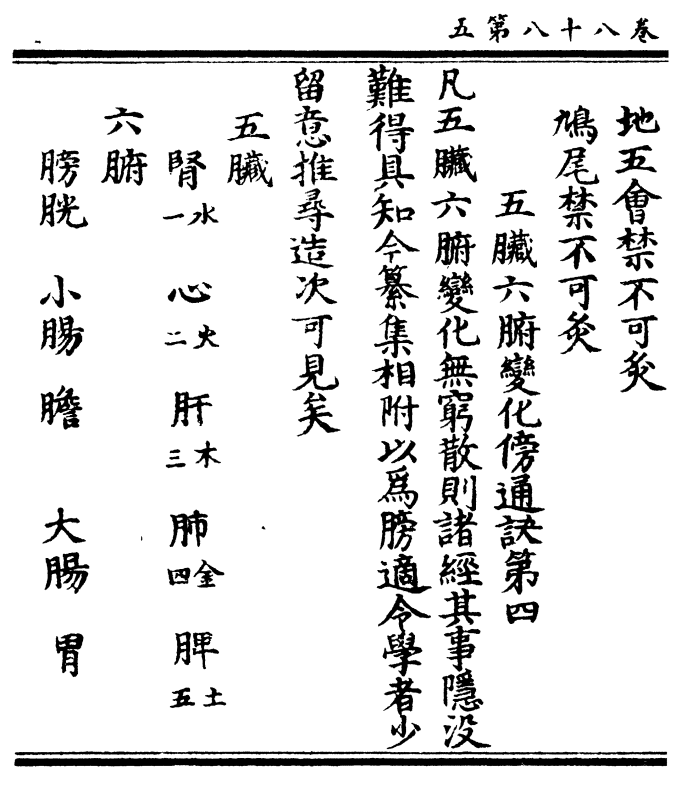 卷八十八第五
地五會禁不可灸
鳩尾禁不可灸
五臓六腑變化傍通訣第四
凡五臓六腑變化無窮散則諸經其事隱没
難得具知今纂集相附以爲膀適令學者少
留意推尋造次可見矣
五臓
腎水一 心火二 肝木三 肺金四 脾土五
六腑
膀胱 小腸 膽 大腸 胃